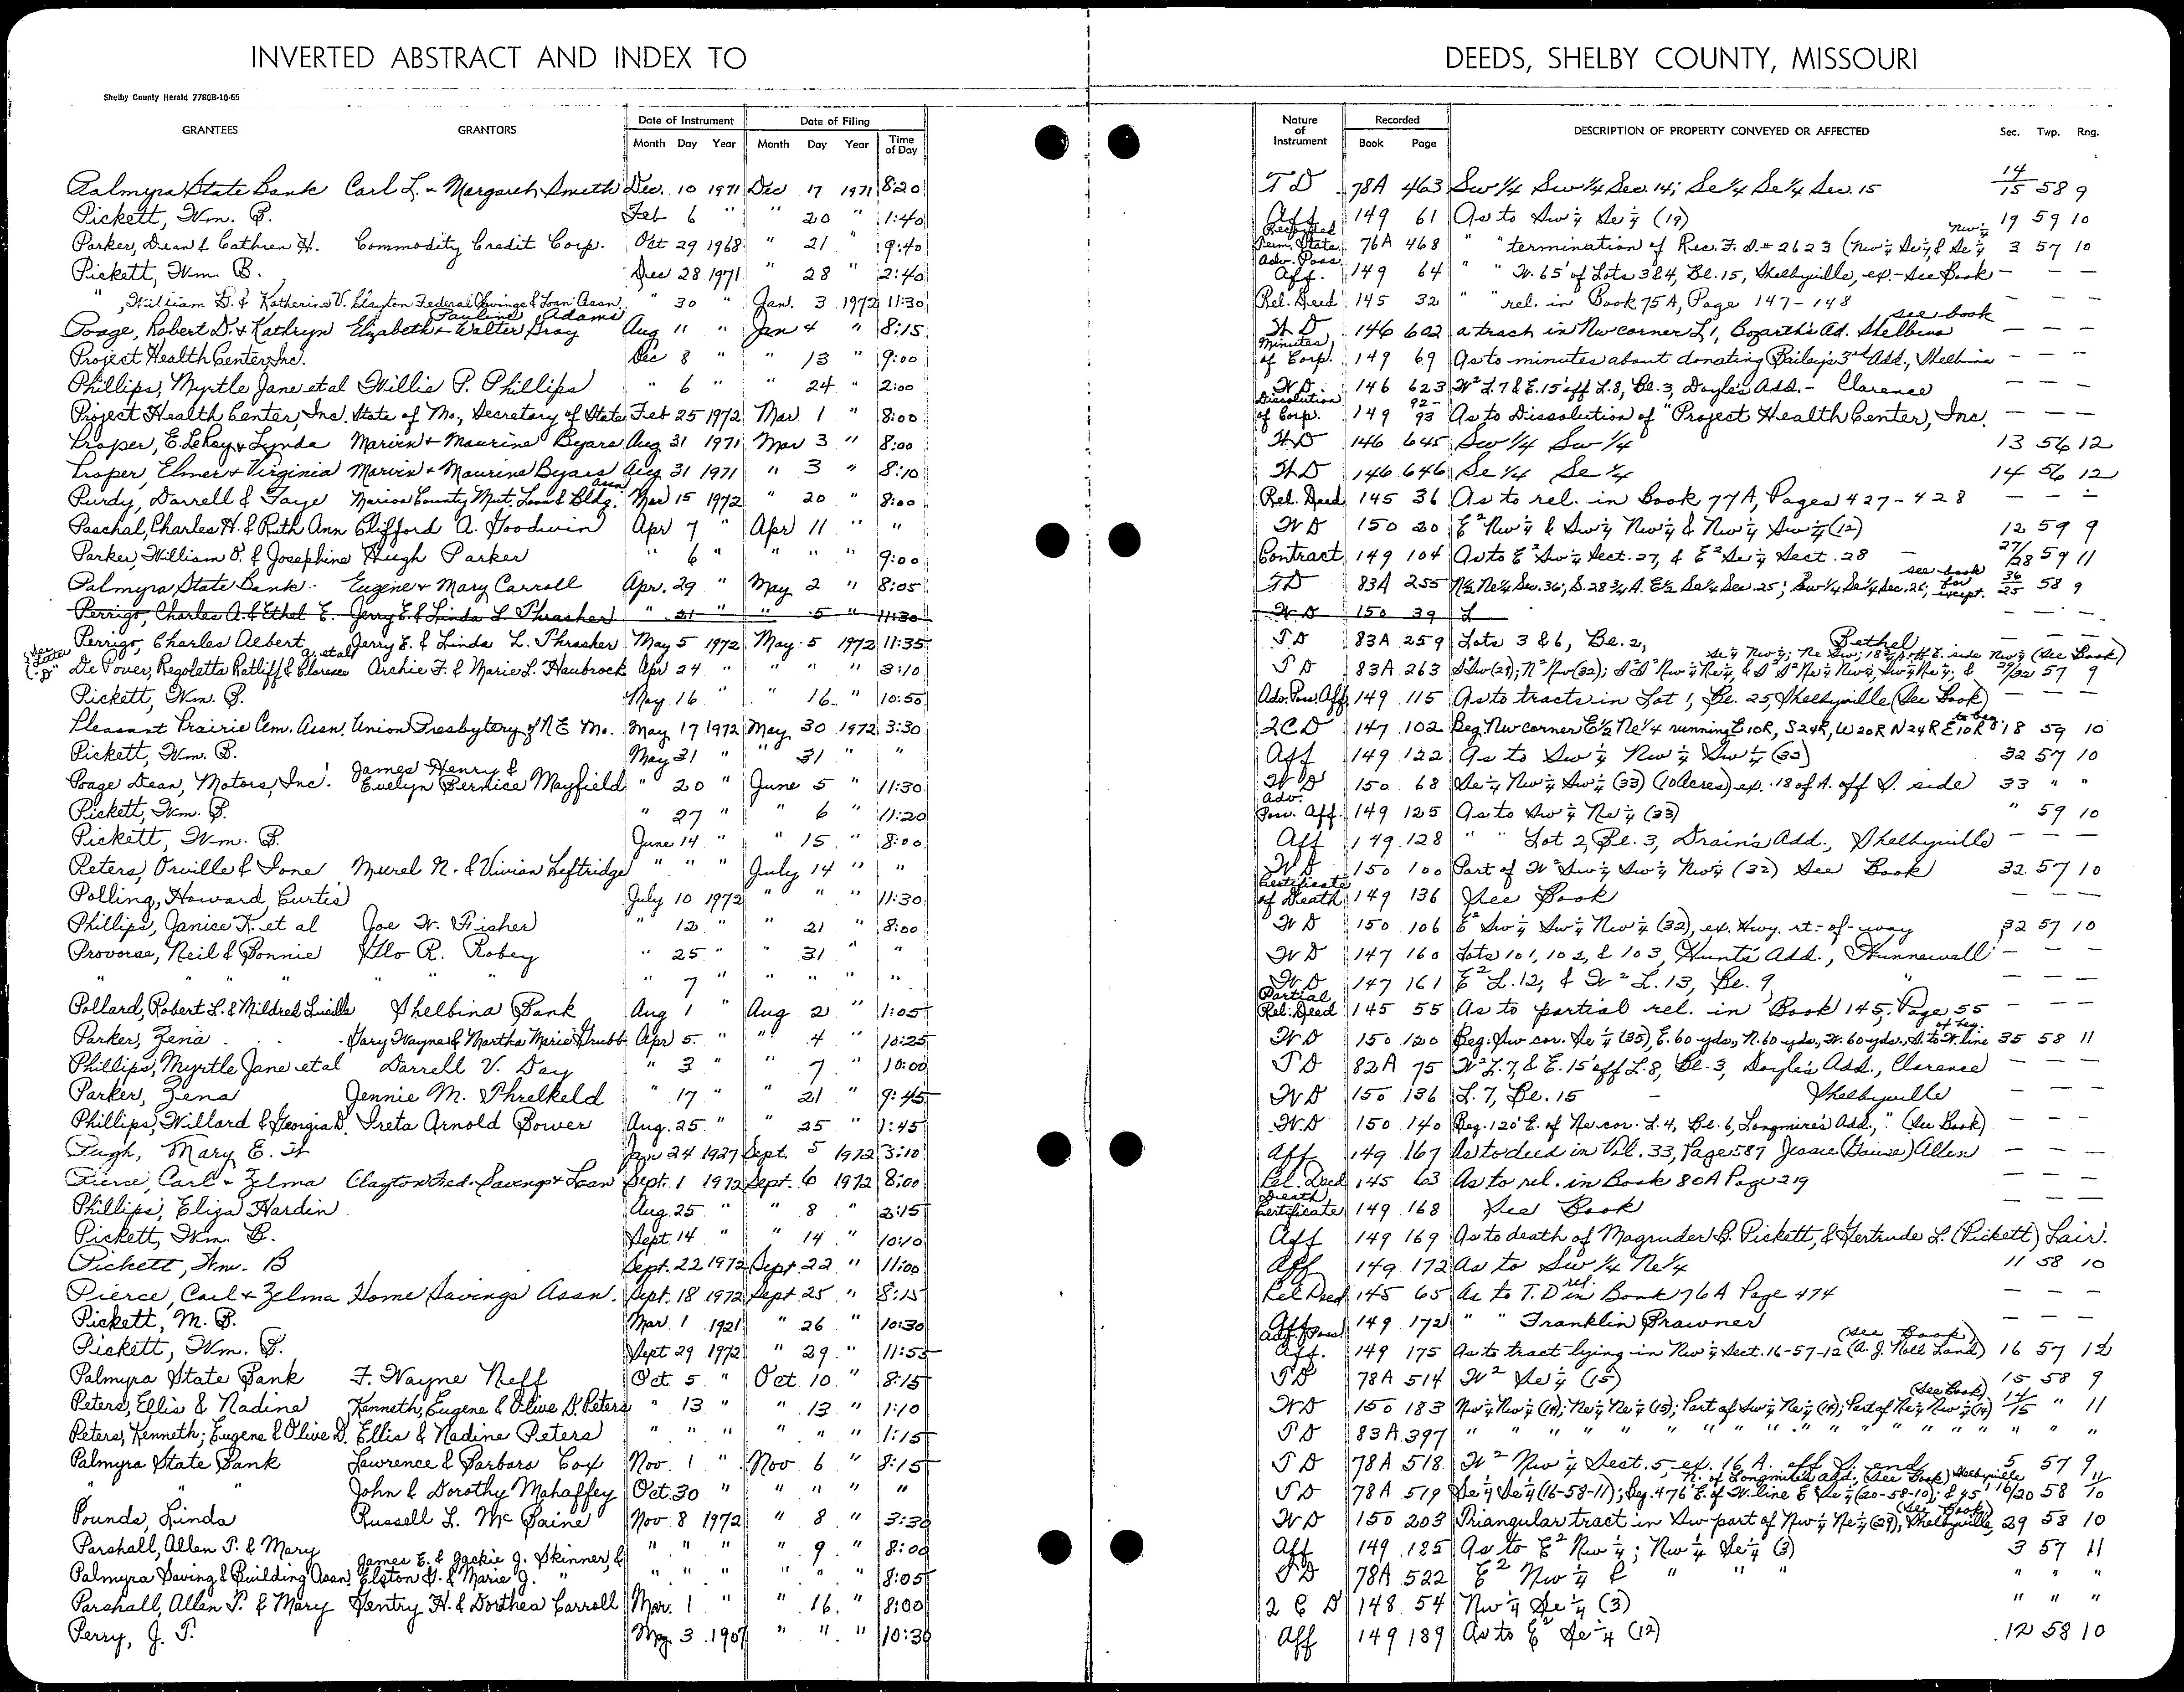 INVERTED ABSTRACT AND INDEX TO DEEDS, SHELBY COUNTY, MISSOURI
Shelby County Herald 7780B-10-65
GRANTEES GRANTORS Date of Instrument Date of Filing Nature of Instrument Recorded DESCRIPTION OF PROPERTY CONVEYED OR AFFECTED Sec. Twp. Rng.
Month Day Year Month Day Year Time of Day Book Page
Palmyra State Bank Carl L. & Margaret Smith Dec. 10 1971 Dec 17 1971 8:20 T D 78A 463 Sw 1/4 Sw 1/4 Sec. 14; Se 1/4 Se 1/4 Sec. 15 14/15 58 9
Pickett, Wm. B. Feb 6 " " 20 " 1:40 Aff 149 61 As to Sw 1/4 Se 1/4 (19) 19 59 10
Parker, Dean & Cathren H. Commodity Credit Corp. Oct 29 1968 " 21 " 9:40 Term. State. 76A 468 " " termination of Rec. F. S. # 2623 (Nw 1/4 Se 1/4 & Se 1/4 Nw 1/4 3 57 10
Pickett, Wm. B. Dec 28 1971 " 28 " 2:40 Adv. Poss. Aff. 149 64 " " W. 65' of Lots 3 & 4, Bl. 15, Shelbyville, ex. - See Book — — —
" , William B. & Katherine V. Clayton Federal Savings & Loan Assn " 30 " Jan. 3 1972 11:30 Rel. Deed 145 32 " " rel. in Book 75A, Page 147-148 — — —
Poage, Robert D. & Kathryn Elizabeth & Walter Gray Pauline Adams Aug 11 " Jan 4 " 8:15 W D 146 602 a tract in Nw corner L 1, Bogarth's Ad. Shelbina see book — — —
Project Health Center, Inc. Dec 8 " " 13 " 9:00 Minutes of Corp. 149 69 As to minutes about donating Bailey's 3rd Add., Shelbina — — —
Phillips, Myrtle Jane et al Willie P. Phillips " 6 " " 24 " 2:00 W D 146 623 W2 L. 7 & E. 15' off L. 8, Bl. 3, Doyle's Add. - Clarence — — —
Project Health Center, Inc. State of Mo., Secretary of State Feb 25 1972 Mar 1 " 8:00 Dissolution of Corp. 149 92-93 As to Dissolution of "Project Health Center, Inc. — — —
Proper, E. LeRoy & Lynda Marvin & Maurine Byars Aug 31 1971 Mar 3 " 8:00 W D 146 645 Sw 1/4 Sw 1/4 13 56 12
Proper, Elmer & Virginia Marvin & Maurine Byars Aug 31 1971 " 3 " 8:10 W D 146 646 Se 1/4 Se 1/4 14 56 12
Purdy, Darrell & Faye Marion County Mut. Loan & Bldg. Assn Mar 15 1972 " 20 " 8:00 Rel. Deed 145 36 As to rel. in Book 77A, Pages 427-428 — — —
Paschal, Charles H. & Ruth Ann Clifford A. Goodwin Apr 7 " Apr 11 " " W D 150 20 E2 Nw 1/4 & Sw 1/4 Nw 1/4 & Nw 1/4 Sw 1/4 (12) 12 59 9
Parker, William O. & Josephine Hugh Parker " 6 " " " " 9:00 Contract 149 104 As to E2 Sw 1/4 Sect. 27, & E2 Se 1/4 Sect. 28 27/28 59 11
Palmyra State Bank Eugene & Mary Carroll Apr. 29 " May 2 " 8:05 T D 83A 255 N 1/2 Ne 1/4 Sec. 36; S. 28 3/4 A. E 1/2 Se 1/4 Sec. 25; Sw 1/4 Se 1/4 Sec. 25; see book for except. 36/25 58 9
Perrigo, Charles A. & Ethel E. Jerry E. & Linda L. Thrasher " 21 " " 5 " 11:30 W D 150 39 L — — —
Perrigo, Charles Albert Jerry E. & Linda L. Thrasher May 5 1972 May 5 1972 11:35 T D 83A 259 Lots 3 & 6, Bl. 2, Bethel — — —
De Pover, Regoletta Ratliff & Clarence a. et al Archie F. & Marie L. Haubrock Apr 24 " " " " 3:10 T D 83A 263 57 9
Pickett, Wm. B. May 16 " " 16 " 10:50 Adv. Poss. Aff 149 115 As to tracts in Lot 1, Bl. 25, Shelbyville (See Book) — — —
Pleasant Prairie Cem. Assn. Union Presbytery of N E Mo. May 17 1972 May 30 1972 3:30 2 C D 147 102 Beg. Nw corner E 1/2 Ne 1/4 running E 10R, S 24R, W 20R N 24R E 10R to beg. 18 59 10
Pickett, Wm. B. May 31 " " 31 " " Aff 149 122 As to Sw 1/4 Nw 1/4 Sw 1/4 (33) 32 57 10
Poage Dean, Motors, Inc. James Henry & Evelyn Bernice Mayfield " 20 " June 5 " 11:30 W D 150 68 Se 1/4 Nw 1/4 Sw 1/4 (33) (10 acres) ex. .18 of A. off S. side 33 " "
Pickett, Wm. B. " 27 " " 6 " 11:20 Adv. Poss. Aff. 149 125 As to Sw 1/4 Ne 1/4 (33) " 59 10
Pickett, Wm. B. June 14 " " 15 " 8:00 Aff 149 128 " " Lot 2, Bl. 3, Drain's Add., Shelbyville — — —
Peters, Orville & Ione Murel N. & Vivian Leftridge " " " July 14 " " W D 150 100 Part of W2 Sw 1/4 Sw 1/4 Nw 1/4 (32) See Book 32 57 10
Polling, Howard, Curtis July 10 1972 " " " 11:30 Certificate of Death 149 136 See Book — — —
Phillips, Janice K. et al Joe W. Fisher " 12 " " 21 " 8:00 W D 150 106 E2 Sw 1/4 Sw 1/4 Nw 1/4 (32), ex. Hwy. rt.-of-way 32 57 10
Provorse, Neil & Bonnie Flo R. Robey " 25 " " 31 " " W D 147 160 Lots 101, 102, & 103, Hunt's Add., Hunnewell — — —
" " " " " 7 " " " " " W D 147 161 E2 L. 12, & W2 L. 13, Bl. 9, " — — —
Pollard, Robert L. & Mildred Lucille Shelbina Bank Aug 1 " Aug 2 " 1:05 Partial Rel. Deed 145 55 As to partial rel. in Book 145, Page 55 — — —
Parker, Zena Gary Wayne & Martha Marie Grubb Apr 5 " " 4 " 10:25 W D 150 120 Beg. Sw cor. Se 1/4 (35), E. 60 yds, N. 60 yds., W. 60 yds., S. to W. line of beg. 35 58 11
Phillips, Myrtle Jane et al Darrell V. Day " 3 " " 7 " 10:00 T D 82A 75 W2 L. 7, & E. 15' off L. 8, Bl. 3, Doyle's Add., Clarence — — —
Parker, Zena Jennie M. Threlkeld " 17 " " 21 " 9:45 W D 150 136 L. 7, Bl. 15 Shelbyville — — —
Phillips, Willard & Georgia D. Ireta Arnold Bower Aug. 25 " " 25 " 1:45 W D 150 140 Beg. 120' E. of Ne cor. L. 4, Bl. 6, Longmire's Add., " (See Book) — — —
Pugh, Mary E. W Jan 24 1927 Sept. 5 1972 3:10 Aff 149 167 As to deed in Vol. 33, Page 587 Jessie (Gaines) Allen — — —
Pierce, Carl & Zelma Clayton Fed. Savings & Loan Sept. 1 1972 Sept. 6 1972 8:00 Rel. Deed 145 63 As to rel. in Book 80A Page 219 — — —
Phillips, Eliza Hardin Aug. 25 " " 8 " 2:15 Death Certificate 149 168 See Book — — —
Pickett, Wm. B. Sept. 14 " " 14 " 10:10 Aff 149 169 As to death of Magruder B. Pickett, & Gertrude L. (Pickett) Lair.
Pickett, Wm. B Sept. 22 1972 Sept. 22 " 11:00 Aff 149 172 As to Sw 1/4 Ne 1/4 11 58 10
Pierce, Carl & Zelma Home Savings Assn. Sept. 18 1972 Sept. 25 " 8:15 Rel Deed 145 65 As to T.D rel. in Book 76A Page 474 — — —
Pickett, M. B. Mar. 1 1921 " 26 " 10:30 Aff 149 172 " " Franklin Prawner — — —
Pickett, Wm. B. Sept 29 1972 " 29 " 11:55 Adv. Poss. Aff. 149 175 As to tract lying in Nw 1/4 Sect. 16-57-12 (A. J. Noll Land) (See Book) 16 57 12
Palmyra State Bank F. Wayne Neff Oct 5 " Oct. 10 " 8:15 T D 78A 514 W2 Se 1/4 (15) 15 58 9
Peters, Ellis & Nadine Kenneth, Eugene & Olive D. Peters " 13 " " 13 " 1:10 W D 150 183 Nw 1/4 Nw 1/4 (14); Ne 1/4 Ne 1/4 (15); Part of Sw 1/4 Nw 1/4 (14); Part of Ne 1/4 Nw 1/4 (14) (See Book) 14/15 " 11
Peters, Kenneth; Eugene & Olive D. Ellis & Nadine Peters " " " " " " 1:15 T D 83A 397 " " " " " " " " " " " "
Palmyra State Bank Lawrence & Barbara Cox Nov. 1 " Nov 6 " 8:15 T D 78A 518 W2 Nw 1/4 Sect. 5, ex. 16 A. off S. end 5 57 9
" " " John & Dorothy Mahaffey Oct. 30 " " " " " T D 78A 519 Se 1/4 Se 1/4 (16-58-11); Beg. 476' E. of W. line E2 Se 1/4 (20-58-10); & 95' N. of Longmire's Add. (See Book) Shelbyville 16/20 58 11/10
Pounds, Linda Russell L. Mc Paine Nov 8 1972 " 8 " 3:30 W D 150 203 Triangular tract in Sw part of Nw 1/4 Ne 1/4 (29), Shelbyville (See Book) 29 58 10
Parshall, Allen P. & Mary " " " " 9 " 8:00 Aff 149 185 As to E2 Nw 1/4; Nw 1/4 Se 1/4 (3) 3 57 11
Palmyra Saving & Building Assn. James E. & Jackie J. Skinner, & Elston G. & Marie J. " " " " " " " 8:05 T D 78A 522 E2 Nw 1/4 & " " " " " "
Parshall, Allen P. & Mary Gentry H. & Dorthea Carroll Mar. 1 " " 16 " 8:00 2 C D 148 54 Nw 1/4 Se 1/4 (3) " " "
Perry, J. T. May 3 1907 " " " 10:30 Aff 149 189 As to E2 Se 1/4 (12) 12 58 10